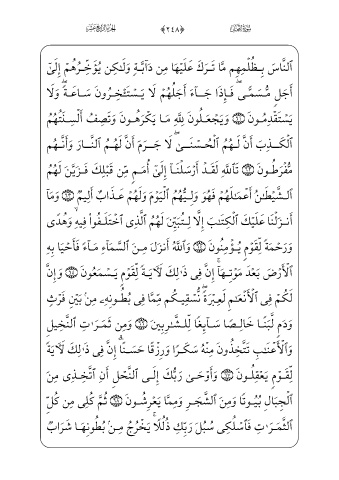 سُورَةُ النَّحْلِ ﴿٢٤٨﴾ الجُزءُ الرَّابِعَ عَشَرَ
ٱلنَّاسَ بِظُلْمِهِم مَّا تَرَكَ عَلَيْهَا مِن دَآبَّةٍ وَلَٰكِن يُؤَخِّرُهُمْ إِلَىٰٓ
أَجَلٍ مُّسَمًّى ۖ فَإِذَا جَآءَ أَجَلُهُمْ لَا يَسْتَـْٔخِرُونَ سَاعَةً ۖ وَلَا
يَسْتَقْدِمُونَ ۝ وَيَجْعَلُونَ لِلَّهِ مَا يَكْرَهُونَ وَتَصِفُ أَلْسِنَتُهُمُ
ٱلْكَذِبَ أَنَّ لَهُمُ ٱلْحُسْنَىٰ ۖ لَا جَرَمَ أَنَّ لَهُمُ ٱلنَّارَ وَأَنَّهُم
مُّفْرَطُونَ ۝ تَٱللَّهِ لَقَدْ أَرْسَلْنَآ إِلَىٰٓ أُمَمٍ مِّن قَبْلِكَ فَزَيَّنَ لَهُمُ
ٱلشَّيْطَٰنُ أَعْمَٰلَهُمْ فَهُوَ وَلِيُّهُمُ ٱلْيَوْمَ وَلَهُمْ عَذَابٌ أَلِيمٌ ۝ وَمَآ
أَنزَلْنَا عَلَيْكَ ٱلْكِتَٰبَ إِلَّا لِتُبَيِّنَ لَهُمُ ٱلَّذِى ٱخْتَلَفُوا۟ فِيهِ ۙ وَهُدًى
وَرَحْمَةً لِّقَوْمٍ يُؤْمِنُونَ ۝ وَٱللَّهُ أَنزَلَ مِنَ ٱلسَّمَآءِ مَآءً فَأَحْيَا بِهِ
ٱلْأَرْضَ بَعْدَ مَوْتِهَآ ۚ إِنَّ فِى ذَٰلِكَ لَـَٔايَةً لِّقَوْمٍ يَسْمَعُونَ ۝ وَإِنَّ
لَكُمْ فِى ٱلْأَنْعَٰمِ لَعِبْرَةً ۖ نُّسْقِيكُم مِّمَّا فِى بُطُونِهِۦ مِنۢ بَيْنِ فَرْثٍ
وَدَمٍ لَّبَنًا خَالِصًا سَآئِغًا لِّلشَّٰرِبِينَ ۝ وَمِن ثَمَرَٰتِ ٱلنَّخِيلِ
وَٱلْأَعْنَٰبِ تَتَّخِذُونَ مِنْهُ سَكَرًا وَرِزْقًا حَسَنًا ۗ إِنَّ فِى ذَٰلِكَ لَـَٔايَةً
لِّقَوْمٍ يَعْقِلُونَ ۝ وَأَوْحَىٰ رَبُّكَ إِلَى ٱلنَّحْلِ أَنِ ٱتَّخِذِى مِنَ
ٱلْجِبَالِ بُيُوتًا وَمِنَ ٱلشَّجَرِ وَمِمَّا يَعْرِشُونَ ۝ ثُمَّ كُلِى مِن كُلِّ
ٱلثَّمَرَٰتِ فَٱسْلُكِى سُبُلَ رَبِّكِ ذُلُلًا ۚ يَخْرُجُ مِنۢ بُطُونِهَا شَرَابٌ